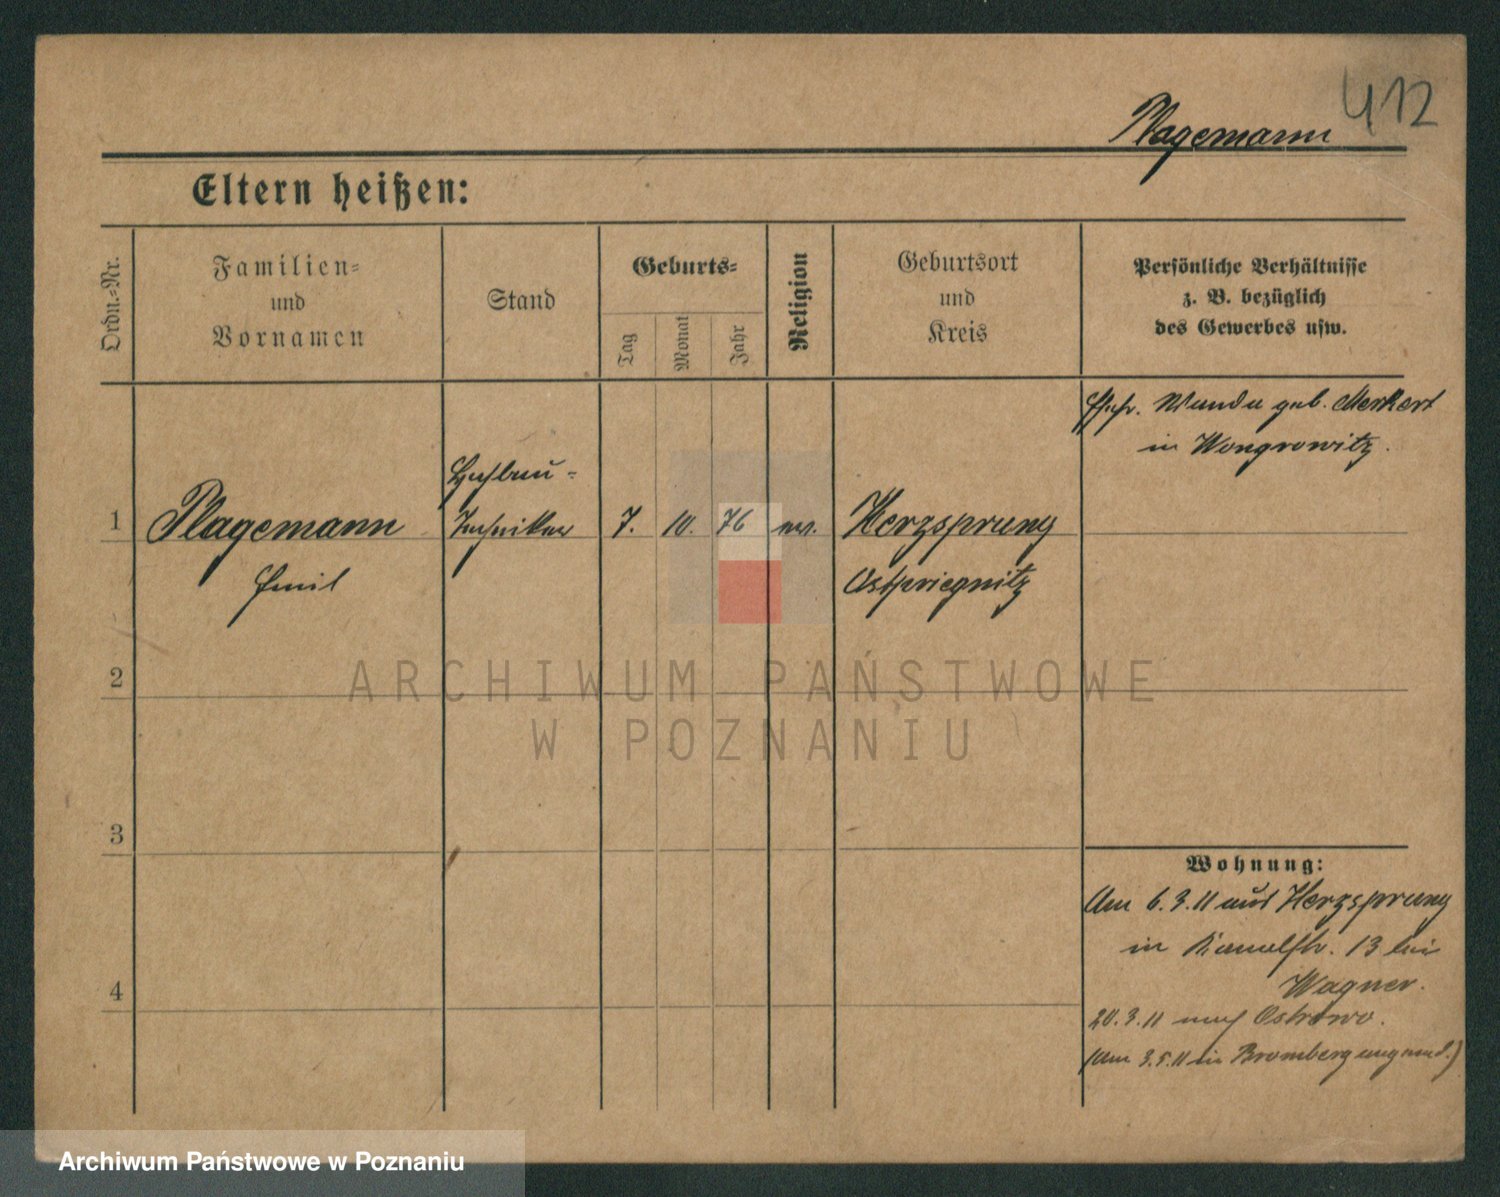 412
Plagemann
Eltern heißen:
Ordn.-Nr.
Familien-
und
Vornamen
Stand
Geburts-
Tag
Monat
Jahr
Religion
Geburtsort
und
Kreis
Persönliche Verhältnisse
z. B. bezüglich
des Gewerbes usw.
Ehefr. Wanda geb. Merkert
in Wongrowitz.
Hochbau-
1 Plagemann Techniker 7. 10. 76 ev. Herzsprung
Emil Ostpriegnitz
2
3
4
Wohnung:
Am 6.3.11 aus Herzsprung
in Kanalstr. 13 bei
Wagner.
20.3.11 nach Ostrowo.
(Am 3.5.11 in Bromberg angemd.)
ARCHIWUM PAŃSTWOWE
W POZNANIU
Archiwum Państwowe w Poznaniu